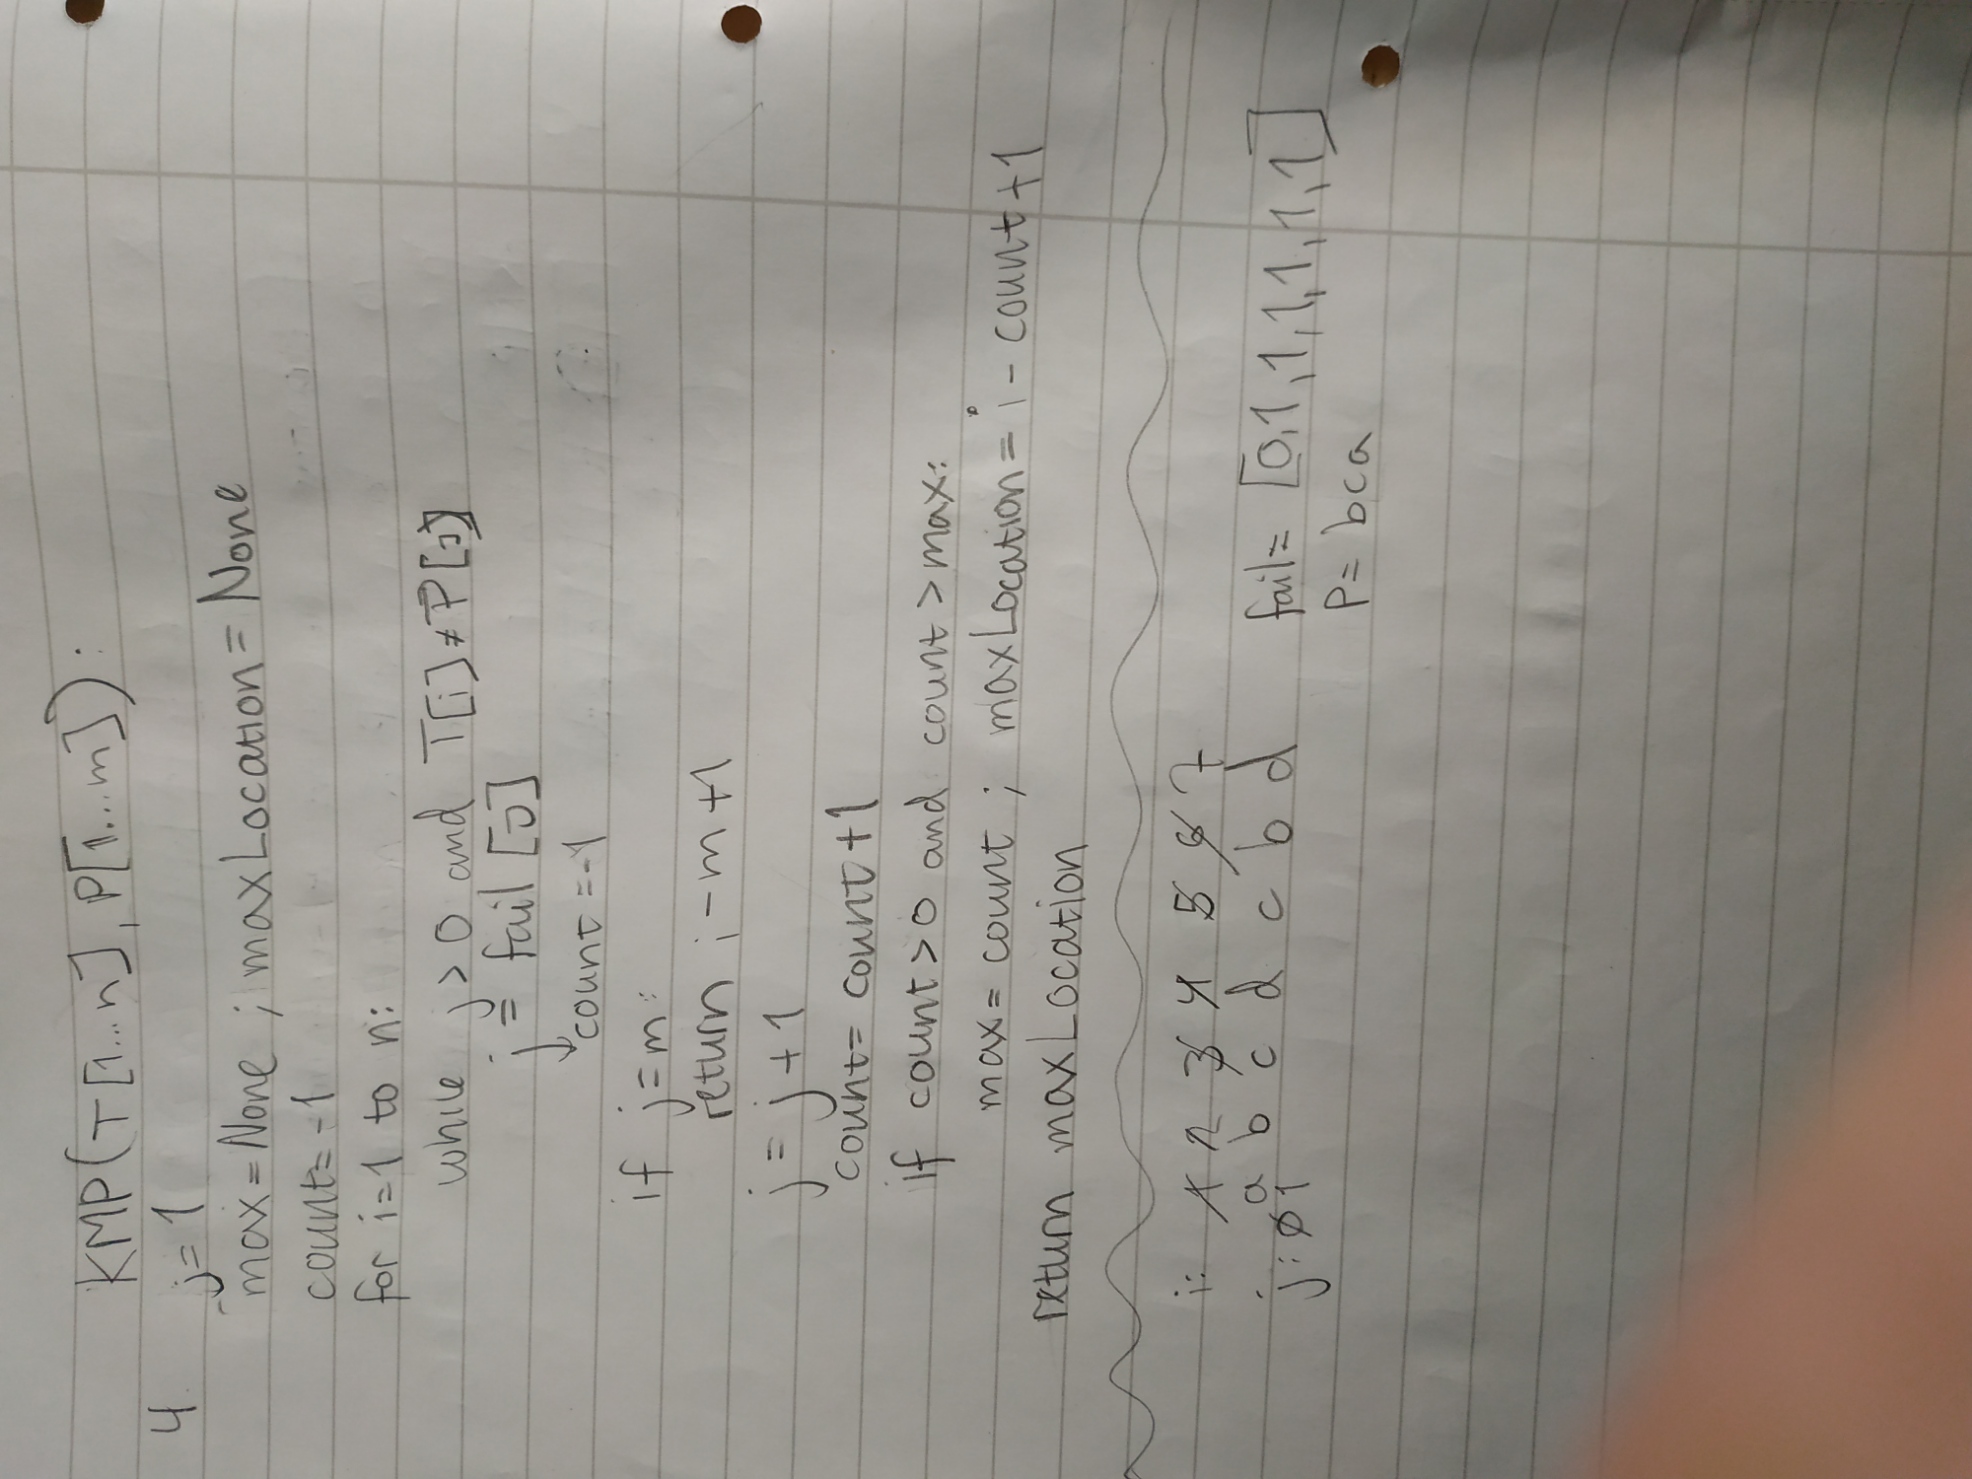 KMP(T[1...n], P[1...m]):
4. j=1
max=None ; maxLocation=None
count=-1
for i=1 to n:
while j>0 and T[i]≠P[j]
j = fail[j]
count=-1
if j=m:
return i-m+1
j=j+1
count=count+1
if count>0 and count>max:
max=count ; maxLocation=i-count+1
return maxLocation
i: 1 2 3 4 5 6 7
a b c d c b d
j: 0 1
fail= [0,1,1,1,1,1,1]
P= bca